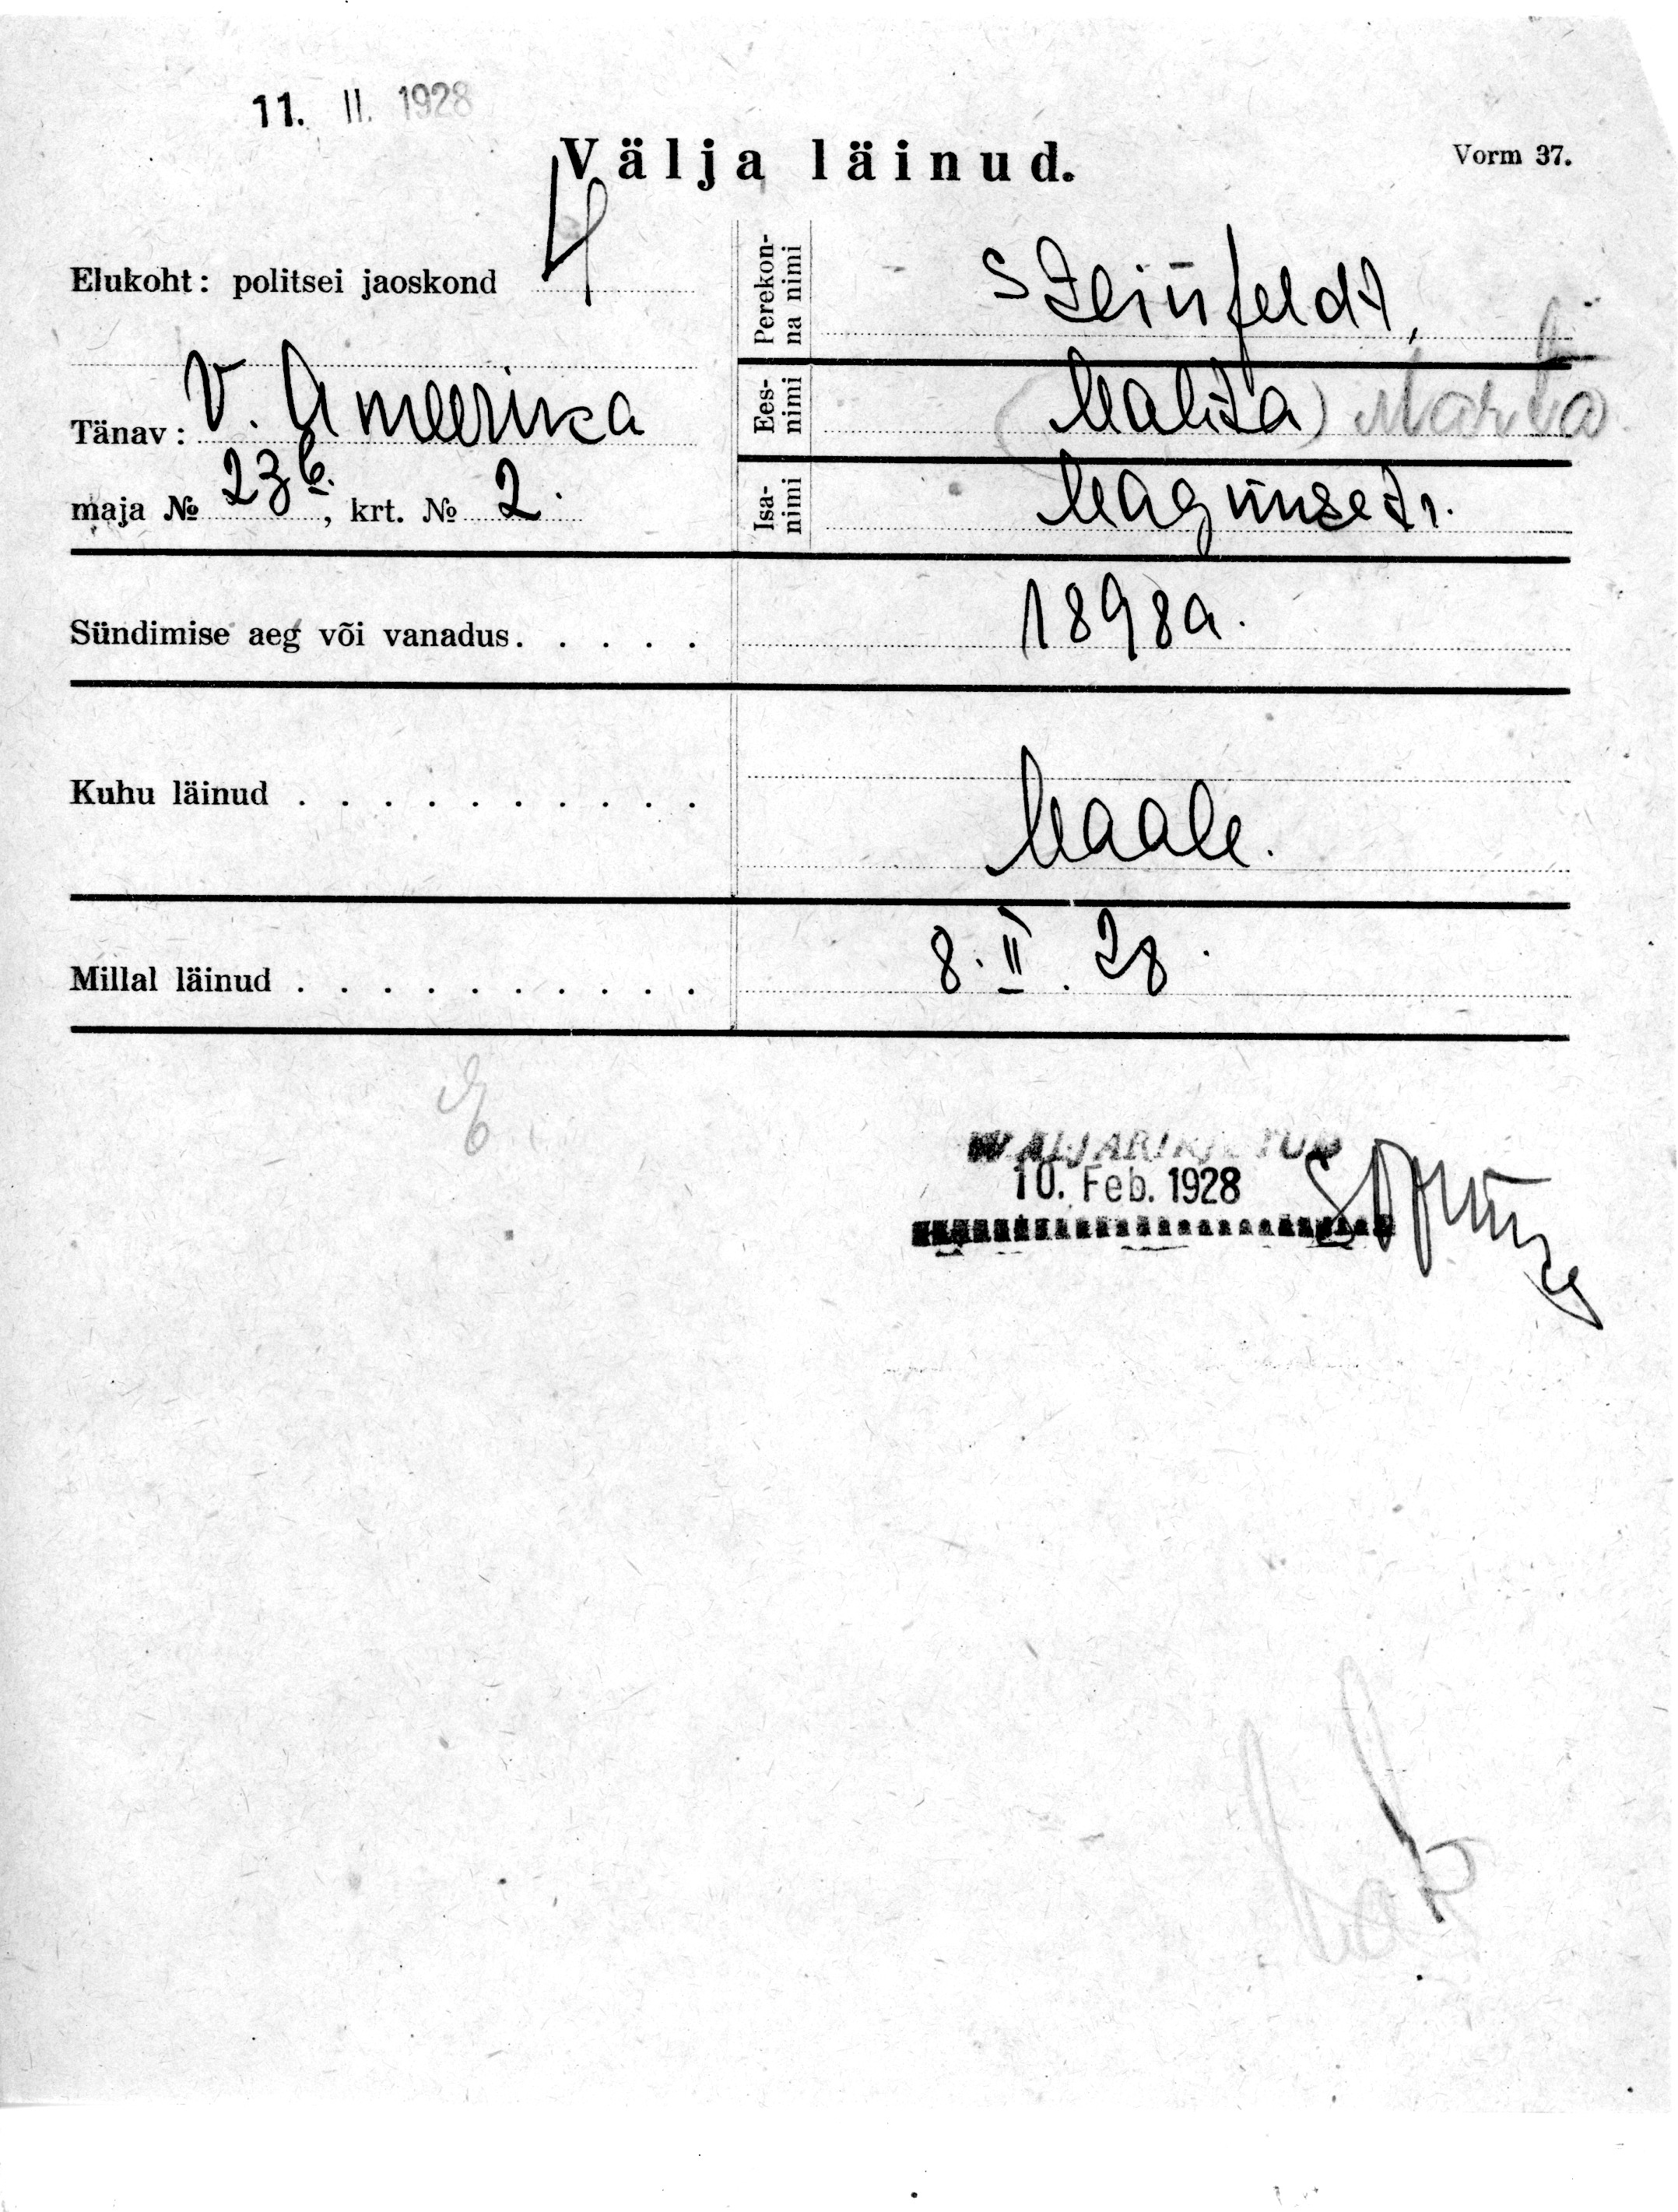 11. II. 1928
Välja läinud.
Vorm 37.
Elukoht: politsei jaoskond 4
Tänav: V. Ameerika
maja № 23b., krt. № 2.
Perekonna nimi Steinfeldt,
Eesnimi (Malita) Marta
Isanimi Magnuse tr.
Sündimise aeg või vanadus. . . . . 1898a.
Kuhu läinud . . . . . . . . . . Maale.
Millal läinud . . . . . . . . . . 8. II. 28.
WÄLJAKIRJUTUD
10. Feb. 1928